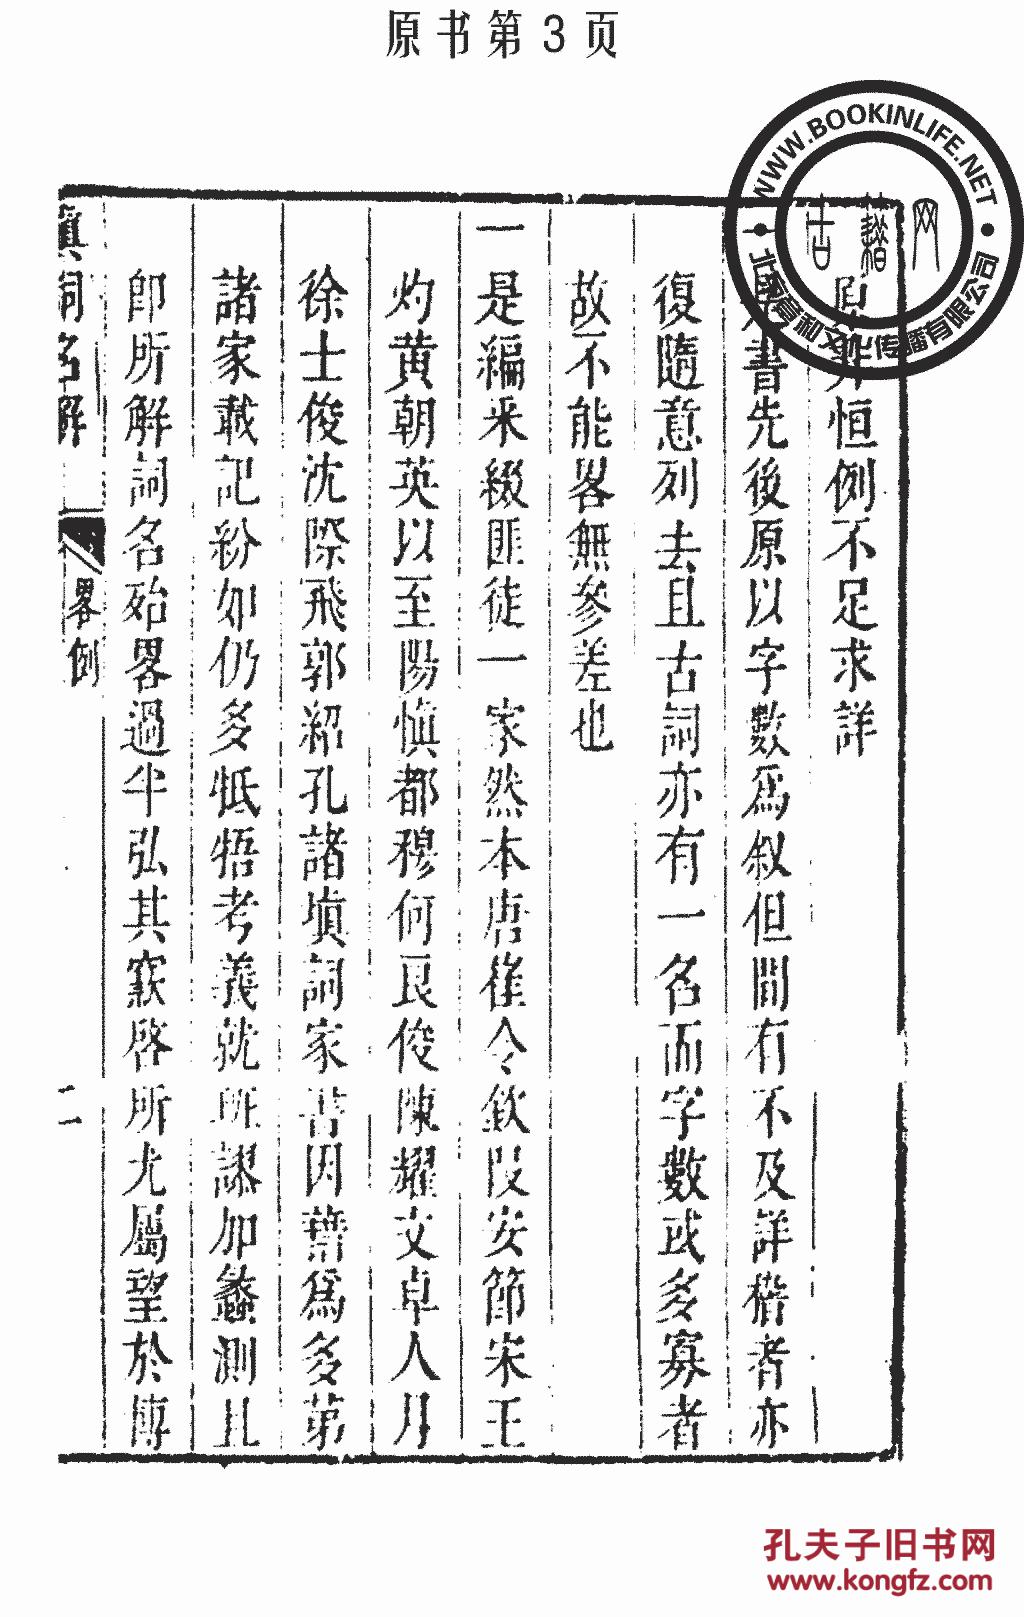 原书第3页
WWW.BOOKINLIFE.NET
古籍网
非恒例不足求詳
一是書先後原以字數爲叙但間有不及詳稽者亦
復隨意列去且古詞亦有一名而字數或多寡者
故不能畧無參差也
一是編采綴匪徒一家然本唐崔令欽段安節宋王
灼黄朝英以至陽慎都穆何良俊陳耀文卓人月
徐士俊沈際飛郭紹孔諸塡詞家書因葉爲多第
諸家載記紛如仍多牴牾考義就所謬加蠡測且
卽所解詞名殆畧過半弘其窾啓所尤屬望於博
塡詞名解
畧例
二
孔夫子旧书网
www.kongfz.com